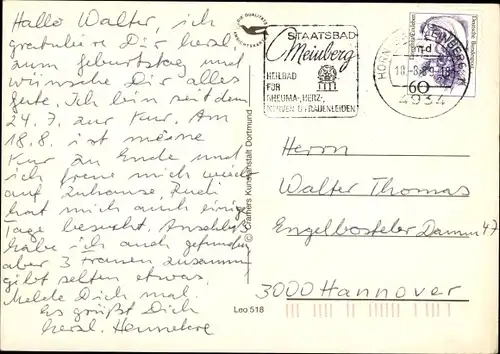 Hallo Walter, ich
gratuliere Dir herzl.
zum Geburtstag und
wünsche Dir alles
Gute. Ich bin seit dem
24.7. zur Kur. Am
18.8. ist meine
Kur zu Ende und
ich freue mich wieder
auf zuhause. Rudi
hat mich auch einige
Tage besucht. Anschluß
habe ich auch gefunden
aber 3 Frauen zusamm
gibt selten etwas.
Melde Dich mal.
Es grüßt Dich
herzl.
DIE QUALITÄTS
© Cramers Kunstanstalt Dortmund
Leo 518
STAATSBAD
Meinberg
HEILBAD
FÜR
RHEUMA-, HERZ-,
NERVEN U. FRAUENLEIDEN
HORN
MEINBERG
4934
60
Herrn
Walter Thomas
Engelbosteler Damm 47
3000 Hannover